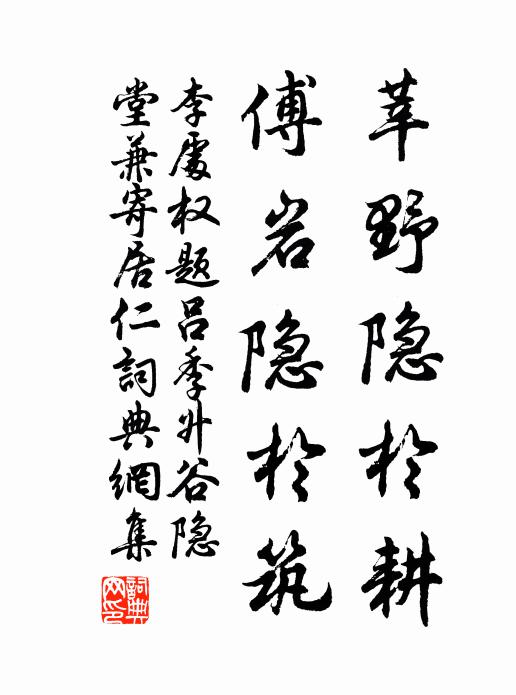 莘野隐於耕
傅岩隐於筑
李處权题吕季升谷隐
堂兼寄居仁詞典網集
詞典网印